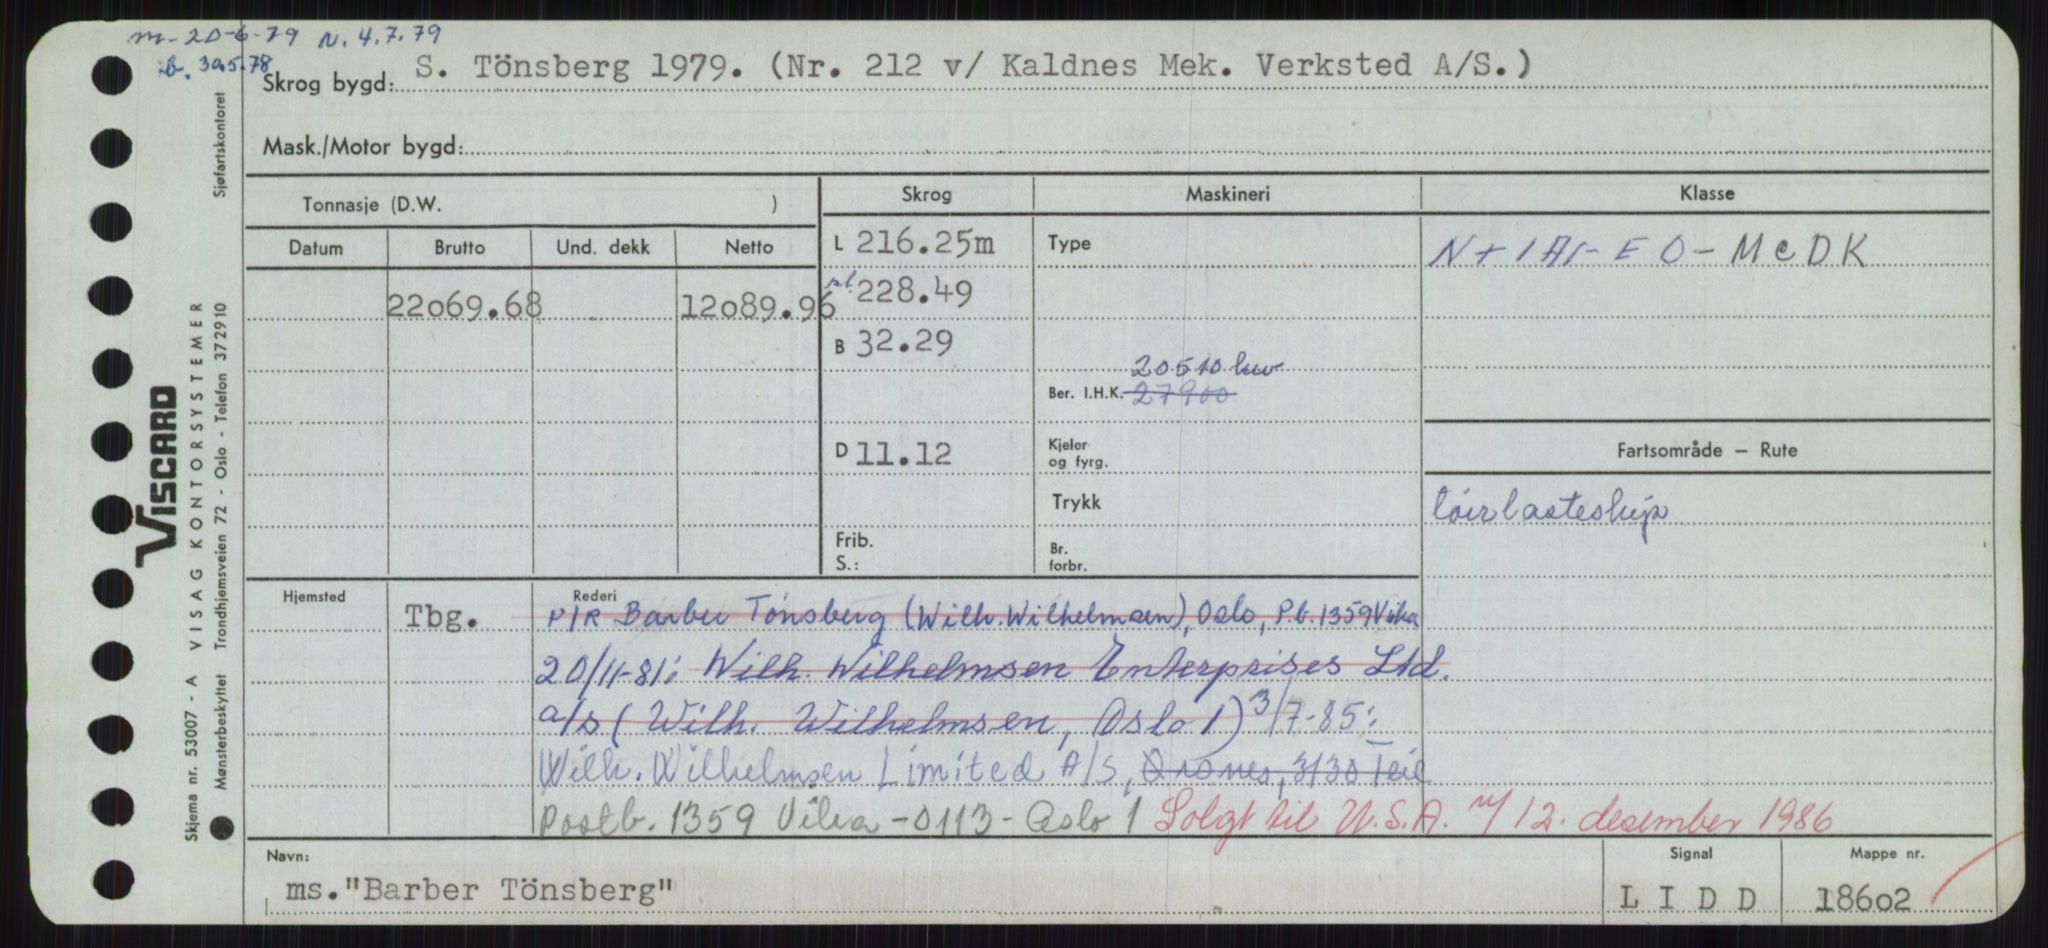 m- 20-6-79 N. 4.7.79
B. 30.5.78
Skrog bygd: S. Tönsberg 1979. (Nr. 212 v/ Kaldnes Mek. Verksted A/S.)
Mask./Motor bygd:
Tonnasje (D.W. )
Skrog Maskineri Klasse
Datum Brutto Und. dekk Netto
L 216.25m Type
22o69.68 12o89.96
st. 228.49
B 32.29
20510 kw
Ber. I.H.K. 27900
D 11.12 Kjeler
og fyrg.
Fartsområde — Rute
Trykk
Frib.
S.:
Br.
forbr.
Hjemsted Tbg.
Rederi
P/R Barber Tönsberg (Wilh. Wilhelmsen), Oslo, P.b. 1359 Vika
20/11-81: Wilh. Wilhelmsen Enterprises Ltd.
a/s (Wilh. Wilhelmsen, Oslo 1) 3/7-85:
Wilh. Wilhelmsen Limited A/S, 3130 Teie
Postb. 1359 Vika - 0113 - Oslo 1 Solgt til U.S.A. 12. desember 1986
Navn: Signal Mappe nr.
ms."Barber Tönsberg" L I D D 186o2
VISCARD
Skjema nr. 53007 - A VISAG KONTORSYSTEMER
Mønsterbeskyttet Trondhjemsveien 72 - Oslo - Telefon 372910 Sjøfartskontoret